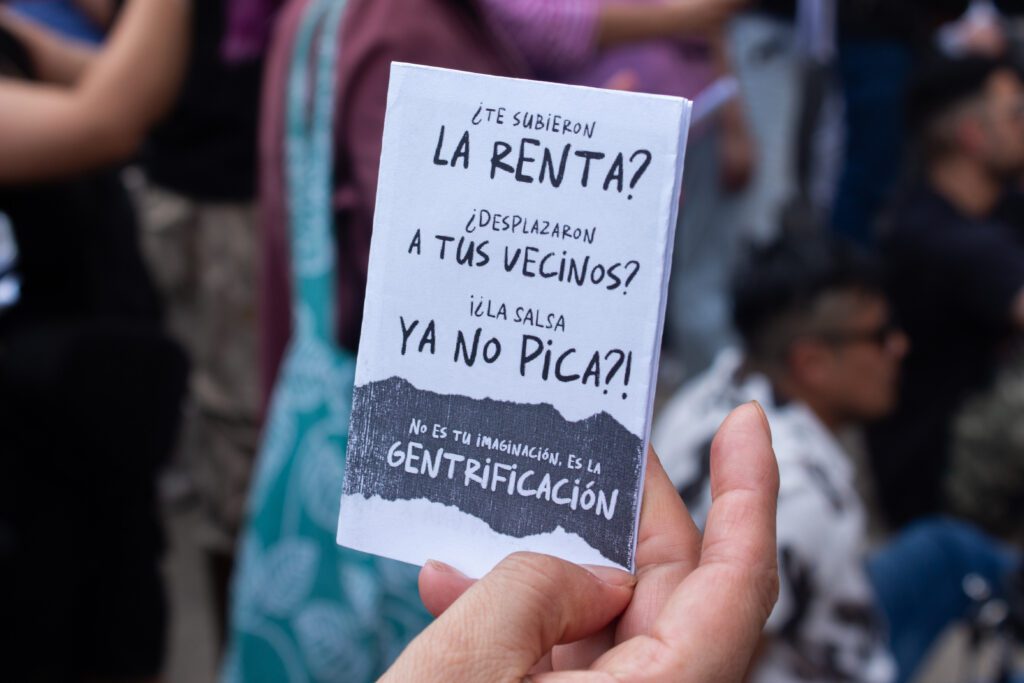 ¿TE SUBIERON
LA RENTA?
¿DESPLAZARON
A TUS VECINOS?
¡¿LA SALSA
YA NO PICA?!
NO ES TU IMAGINACIÓN, ES LA
GENTRIFICACIÓN